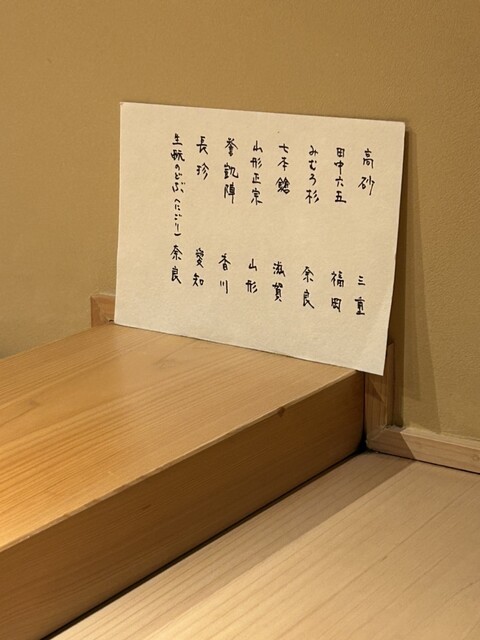 高砂 三重
田中六五 福岡
みむろ杉 奈良
七本鎗 滋賀
山形正宗 山形
誉凱陣 香川
長珍 愛知
生酛のどぶ（にごり） 奈良